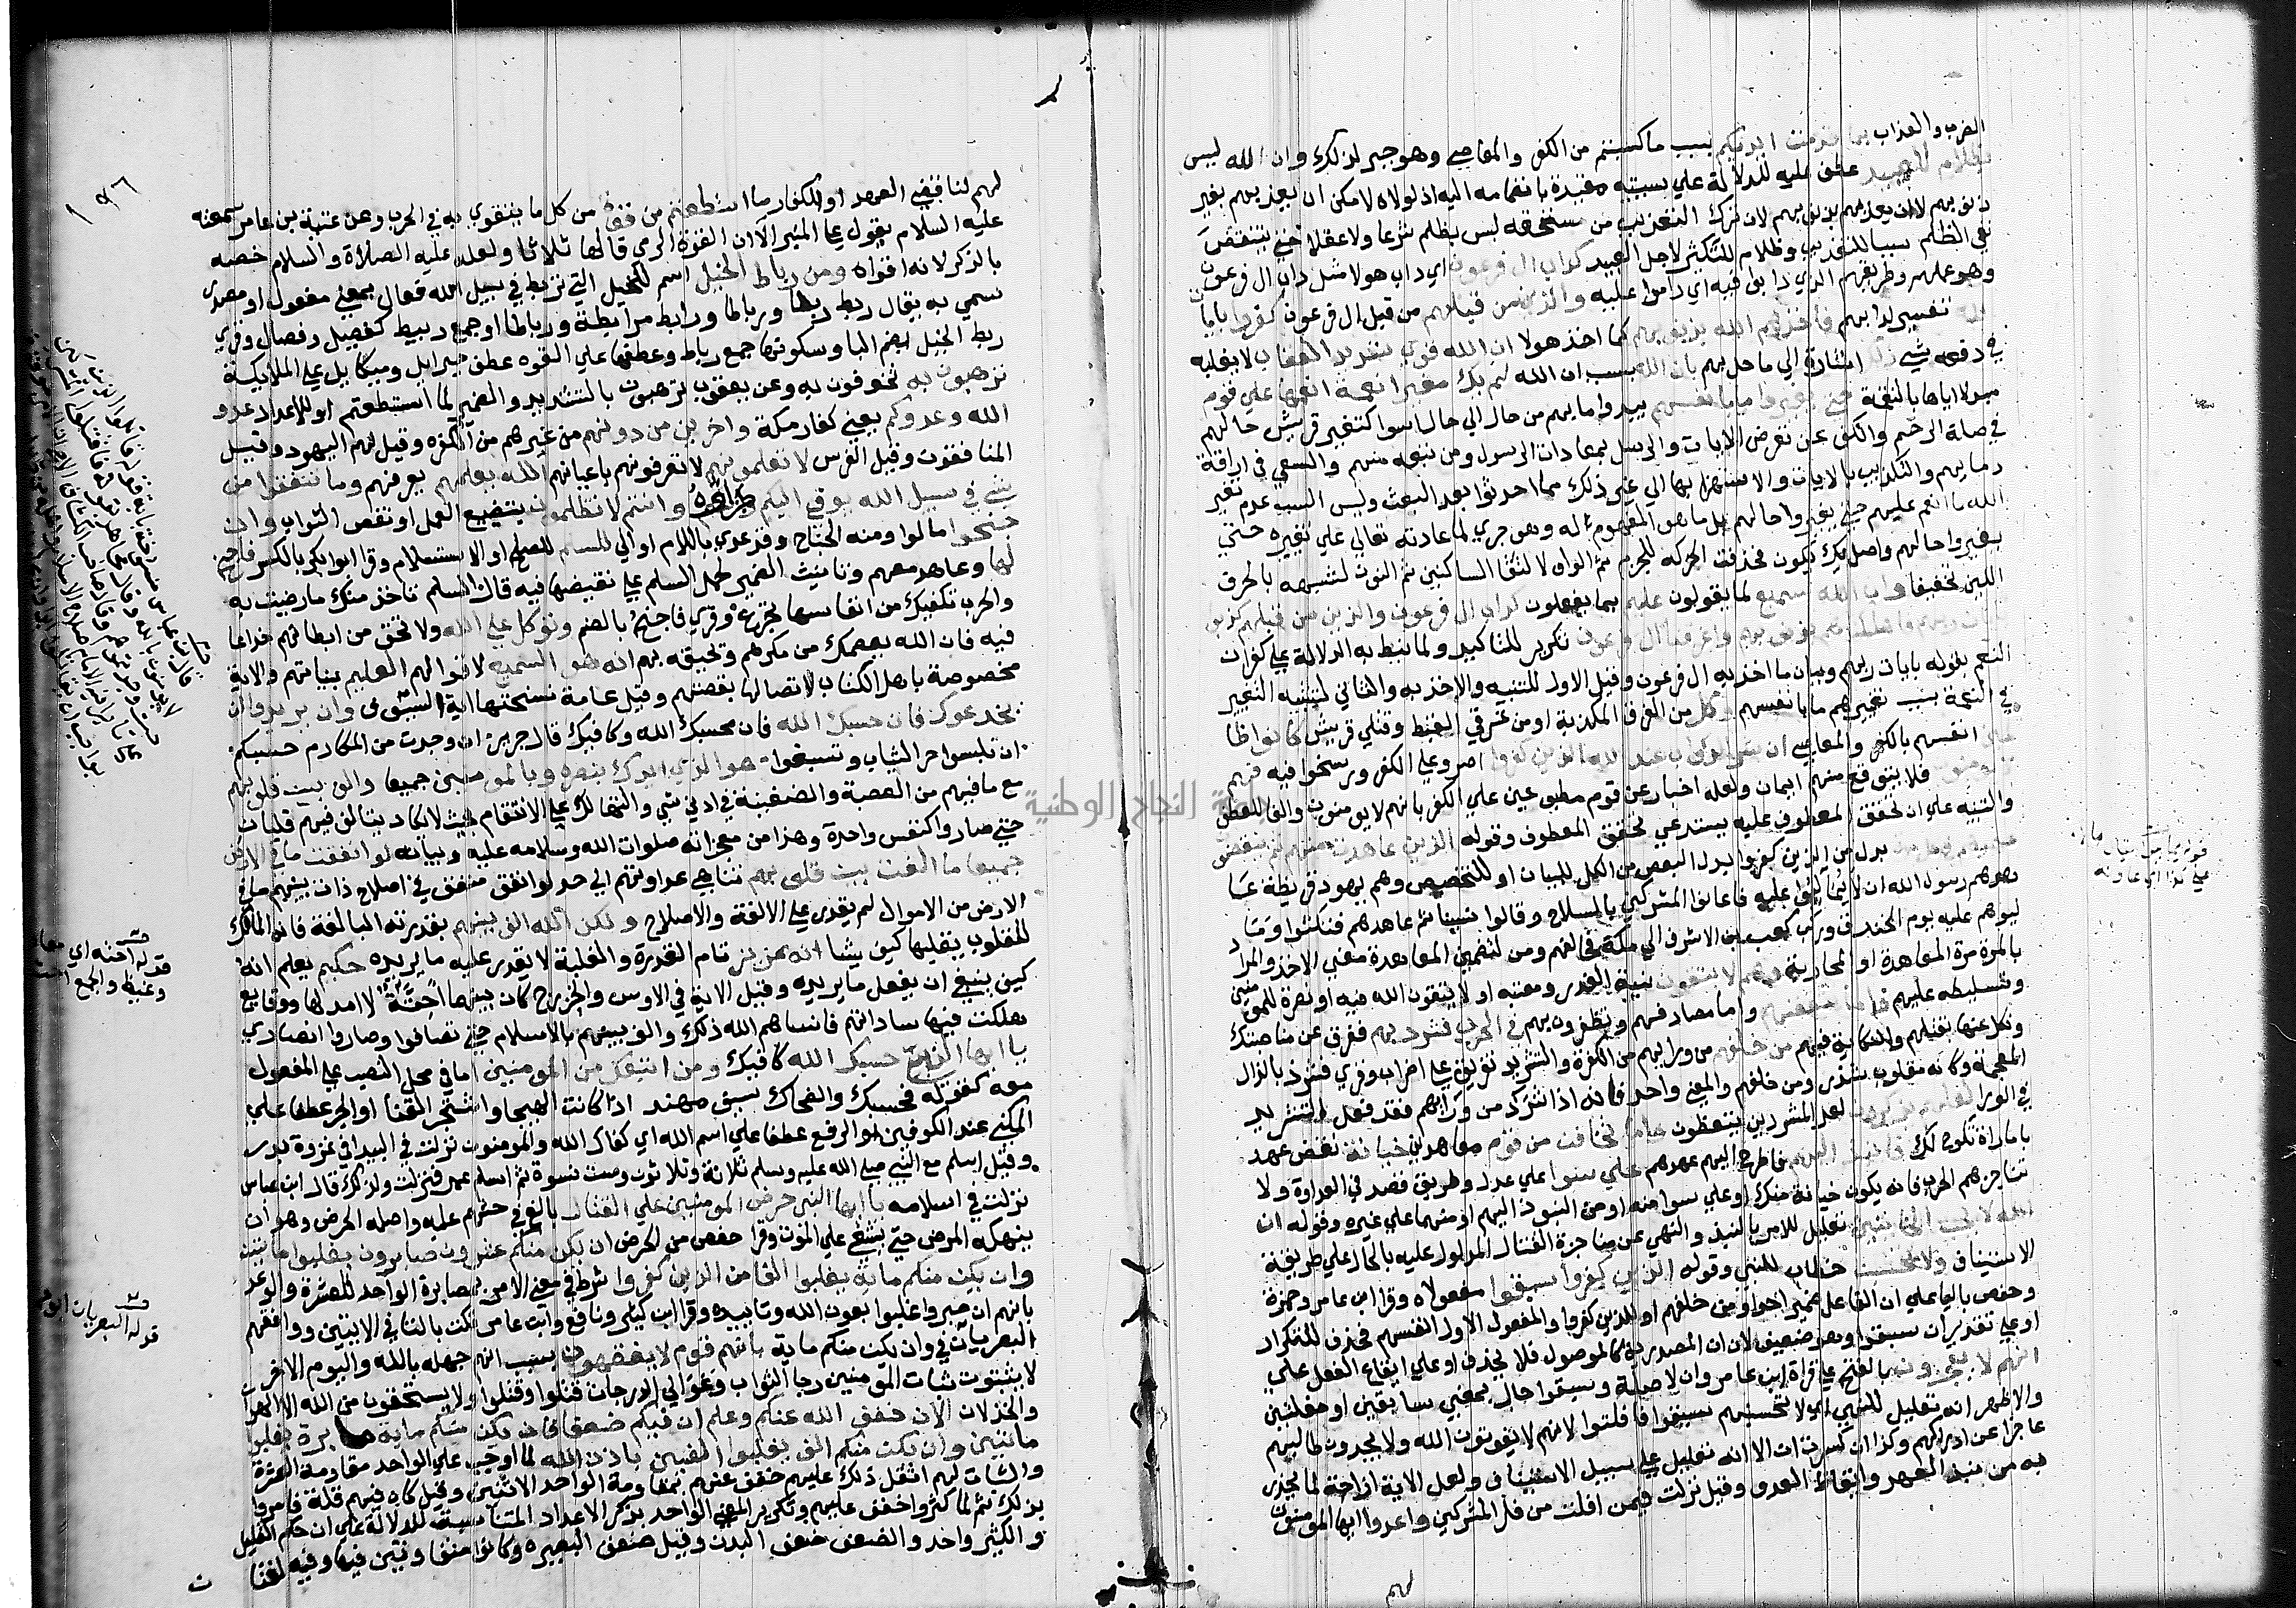 الضرب والعذاب بما قدمت ايديكم بسبب ما كسبتم من الكفر والمعاصي وهو خبر لذلك وان الله ليس
بظلام للعبيد عطف عليه للدلالة علي ان سببيته مقيدة بانضمامه اليه اذ لولاه لامكن ان يعذبهم بغير
ذنوبهم لا ان يعذبهم بذنوبهم لان ترك التعذيب من مستحقه ليس بظلم شرعا ولا عقلا حتي ينتهض
نفي الظلم سببا للتعذيب وظلام للتكثير لاجل العبيد كداب ال فرعون اي داب هولا مثل داب ال فرعون
وهو عملهم وطريقهم الذي دابوا فيه اي داموا عليه والذين من قبلهم من قبل ال فرعون كفروا بايات
الله تفسير لدابهم فاخذهم الله بذنوبهم كما اخذ هولا ان الله قوي شديد العقاب لا يغلبه
في دفعه شي ذلك اشارة الي ما حل بهم بان الله بسبب ان الله لم يك مغيرا نعمة انعمها علي قوم
مبدلا اياها بالنقمة حتي يغيروا ما بانفسهم يبدلوا ما بهم من حال الي حال اسوا كتغيير قريش حالهم
في صلة الرحم والكف عن تعرض الايات والرسل بمعادات الرسول ومن تبعه منهم والسعي في اراقة
دمايهم والتكذيب بالايات والاستهزا بها الي غير ذلك مما احدثوا بعد المبعث وليس السبب عدم تغير
الله ما انعم عليهم حتي يغيروا حالهم بل ما هو المفهوم له وهو جري عادته تعالي علي تغييره حتي
يغيروا حالهم واصل يك يكون فحذفت الحركة للجزم ثم الواو لالتقا الساكنين ثم النون لشبهه بالحرف
اللين تخفيفا وان الله سميع لما يقولون عليم بما يفعلون كداب ال فرعون والذين من قبلهم كذبوا
بايات ربهم فاهلكناهم بذنوبهم واغرقنا ال فرعون تكرير للتاكيد ولما نيط به الدلالة علي كفران
النعم بقوله بايات ربهم وبيان ما اخذ به ال فرعون وقيل الاول للتشبيه والاخذ به والثاني لتشبيه التغيير
في النعمة بسبب تغييرهم ما بانفسهم وكل من الفرق المكذبة او من غرقي القبط وقتلي قريش كانوا ظا
لمين انفسهم بالكفر والمعاصي ان شر الدواب عند الله الذين كفروا اصروا علي الكفر ورسخوا فيه فهم
لا يومنون فلا يتوقع منهم ايمان ولعله اخبار عن قوم مطبوعين علي الكفر بانهم لا يومنون والفا للعطف
والتنبيه علي ان تحقق المعطوف عليه يستدعي تحقق المعطوف وقوله الذين عاهدت منهم ثم ينقضون
عهدهم في كل مرة بدل من الذين كفروا بدل البعض من الكل للبيان او للتخصيص وهم يهود قريظة عا
هدهم رسول الله ان لا يمالئوا عليه فاعانوا المشركين بالسلاح وقالوا نسينا ثم عاهدهم فنكثوا وما
لئوهم عليه يوم الخندق وركب كعب بن الاشرف الي مكة فحالفهم ومن لتضمين المعاهدة معني الاخذ والمراد
بالمرة مرة المعاهدة او المحاربة وهم لا يتقون سبة الغدر ومغبته او لا يتقون الله فيه او نصرة للمومنين
وتسليطه عليهم فاما تثقفنهم واما تصادفنهم وتظفرن بهم في الحرب فشرد بهم ففرق عن مناصبتك
ونكل عنها بقتلهم والنكاية فيهم من خلفهم من ورايهم من الكفرة والتشريد تفريق علي اضطراب وقري فشرذ بالذال
المعجمة وكانه مقلوب شذر ومن خلفهم والمعني واحد فانه اذا شرد من ورايهم فقد فعل التشريد
في الورا لعلهم يذكرون لعل المشردين يتعظون واما تخافن من قوم معاهدين خيانة نقض عهد
بامارات تلوح لك فانبذ اليهم فاطرح اليهم عهدهم علي سوا علي عدل وطريق قصد في العداوة ولا
تناجزهم الحرب فانه يكون خيانة منك او علي سوا منه او من النبوذ اليهم او منهما علي غيره وقوله ان
الله لا يحب الخاينين تعليل للامر بالنبذ والنهي عن مناجزة القتال المدلول عليه بالحال علي طريقة
الاستيناف ولا تحسبن خطاب للنبي وقوله الذين كفروا سبقوا مفعولاه وقرا ابن عامر وحمزة
وحفص باليا علي ان الفاعل ضمير احد او من خلفهم او الذين كفروا والمفعول الاول انفسهم فحذف للتكرار
او علي تقدير ان سبقوا وهو ضعيف لان ان المصدرية كالموصول فلا يحذف او علي ايقاع الفعل علي
انهم لا يعجزون بالفتح علي قراة ابن عامر وان لا صلة وسبقوا حال بمعني سابقين او مفلتين
والاظهر انه تعليل للنهي اي لا تحسبنهم سبقوا فافلتوا لانهم لا يفوتون الله ولا يجدون طالبهم
عاجزا عن ادراكهم وكذا ان كسرت ان الا انه تعليل علي سبيل الاستيناف ولعل الاية ازاحة لما يحذر
به من نبذ العهد وايقاظ العدو وقيل نزلت فيمن افلت من فل المشركين واعدوا ايها المومنون
لهم
لهم لناقضي العهد او للكفار ما استطعتم من قوة من كل ما يتقوي به في الحرب وعن عقبة بن عامر سمعته
عليه السلام يقول علي المنبر الا ان القوة الرمي قالها ثلاثا ولعله عليه الصلاة والسلام خصه
بالذكر لانه اقواه ومن رباط الخيل اسم للخيل التي تربط في سبيل الله فعال بمعني مفعول او مصدر
سمي به يقال ربط ربطا ورباطا ورابط مرابطة ورباطا او جمع ربيط كفصيل وفصال وقري
ربط الخيل بضم البا وسكونها جمع رباط وعطفها علي القوة عطف جبرايل وميكايل علي الملايكة
ترهبون به تخوفون به وعن يعقوب ترهبون بالتشديد والضمير لما استطعتم او للاعداد عدو
الله وعدوكم يعني كفار مكة واخرين من دونهم من غيرهم من الكفرة وقيل لهم اليهود وقيل
المنافقون وقيل الفرس لا تعلمونهم لا تعرفونهم باعيانهم الله يعلمهم يعرفهم وما تنفقوا من
شي في سبيل الله يوف اليكم جزاؤه وانتم لا تظلمون بتضييع العمل او نقص الثواب وان
جنحوا مالوا ومنه الجناح وقد عدي باللام او الي للسلم للصلح او الاستسلام وقرا ابو بكر بالكسر فاجنح
لها وعاهد معهم وتانيث الضمير لحمل السلم علي نقيضها فيه قال السلم تاخذ منك ما رضيت به
والحرب تكفيك من انفاسها جرع وقري فاجنح بالضم وتوكل علي الله ولا تخف من ابطانهم خداعا
فيه فان الله يعصمك من مكرهم وتحيقه بهم انه هو السميع لاقوالهم العليم بنياتهم والاية
مخصوصة باهل الكتاب لاتصالها بقصتهم وقيل عامة نسختها اية السيف وان يريدوا ان
يخدعوك فان حسبك الله فان محسبك الله وكافيك قال جرير اني وجدت من المكارم حسبكم
ان تلبسوا حر الثياب وتشبعوا هو الذي ايدك بنصره وبالمومنين جميعا والف بين قلوبهم
مع ما فيهم من العصبية والضغينة في ادني شي والتهالك علي الانتقام بحيث لا يكاد يتالف فيهم قلبان
حتي صاروا كنفس واحدة وهذا من معجزاته صلوات الله وسلامه عليه وبيانه لو انفقت ما في الارض
جميعا ما الفت بين قلوبهم تناهي عداوتهم الي حد لو انفق منفق في اصلاح ذات بينهم ما في
الارض من الاموال لم يقدر علي الالفة والاصلاح ولكن الله الف بينهم بقدرته البالغة فانه المالك
للقلوب يقلبها كيف يشا انه عزيز تام القدرة والغلبة لا يقدر عليه ما يريده حكيم يعلم انه
كيف ينبغي ان يفعل ما يريده وقيل الاية في الاوس والخزرج كان بينهما احنة لا امد لها ووقايع
هلكت فيها ساداتهم فانساهم الله ذلك والف بينهم بالاسلام حتي تصافوا وصاروا انصارا
يا ايها النبي حسبك الله كافيك ومن اتبعك من المومنين اما في محل النصب علي المفعول
معه كقوله فحسبك والضحاك سيف مهند اذا كانت الهيجا واشتجر القنا او الجر عطفا علي
المكني عند الكوفيين او الرفع عطفا علي اسم الله اي كفاك الله والمومنون نزلت في البيدا في غزوة بدر
وقيل اسلم مع النبي صلي الله عليه وسلم ثلاثة وثلاثون وست نسوة ثم اسلم عمر فنزلت ولذلك قال ابن عباس
نزلت في اسلامه يا ايها النبي حرض المومنين علي القتال بالغ في حثهم عليه واصله الحرض وهو ان
ينهكه المرض حتي يشفي علي الموت وقرا حفص من الحرض ان يكن منكم عشرون صابرون يغلبوا مايتين
وان يكن منكم ماية يغلبوا الفا من الذين كفروا شرط في معني الامر بمصابرة الواحد للعشرة والوعد
بانهم ان صبروا غلبوا بعون الله وتاييده وقرا ابن كثير ونافع وابن عامر تكن بالتا في الايتين ووافقهم
البصريان في وان يكن منكم ماية بانهم قوم لا يفقهون بسبب انهم جهلة بالله واليوم الاخر
لا يثبتون ثبات المومنين رجا الثواب وعوالي الدرجات قتلوا وقتلوا ولا يستحقون من الله الا الهوان
والخذلان الان خفف الله عنكم وعلم ان فيكم ضعفا فان يكن منكم ماية صابرة يغلبوا
مايتين وان يكن منكم الف يغلبوا الفين باذن الله لما اوجب علي الواحد مقاومة العشرة
والثبات لهم اثقل ذلك عليهم خفف عنهم بمقاومة الواحد الاثنين وقيل كان فيهم قلة فامروا
بذلك ثم لما كثروا خفف عليهم وتكرير المعني الواحد بذكر الاعداد المتناسبة للدلالة علي ان حكم القليل
والكثير واحد والضعف ضعف البدن وقيل ضعف البصيرة وكانوا متفاوتين فيها وفيه لغتا
ن
قوله احنة اي
وغيظ والجمع
قوله البصريان